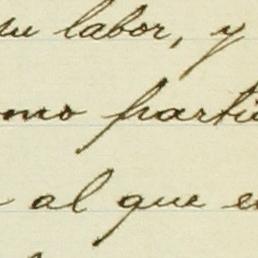 su labor, y
omo parti
al que e